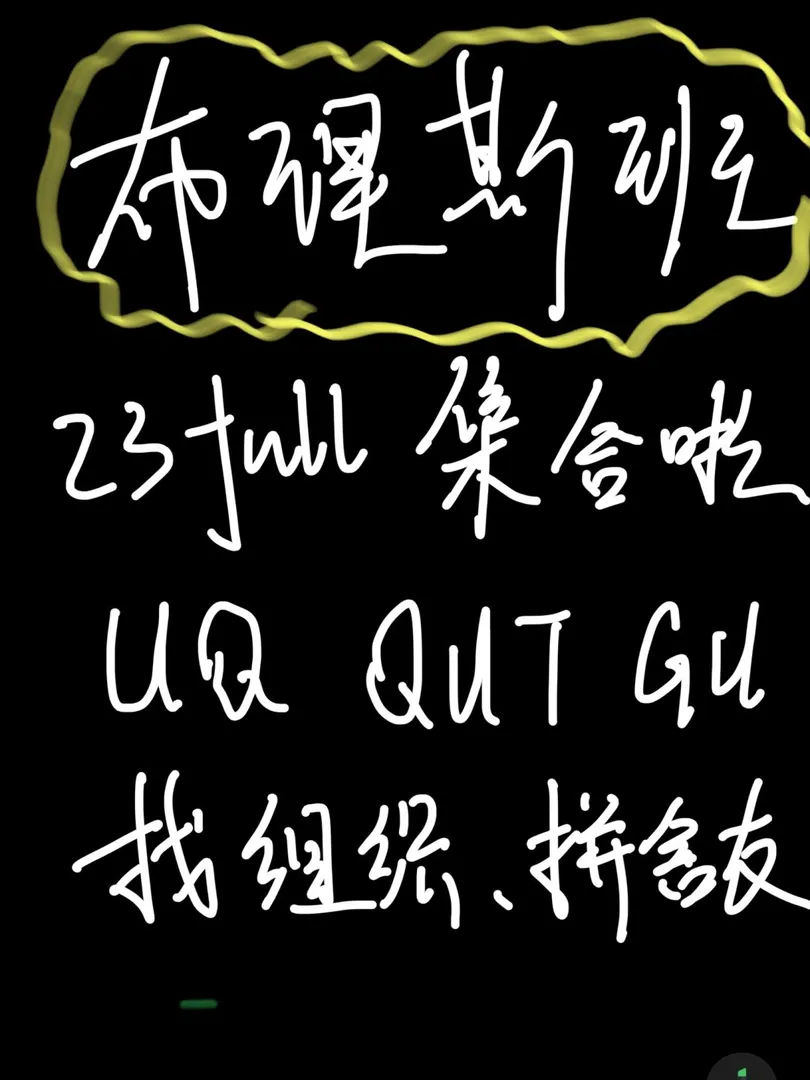 布理斯班
23 full 集合啦
UQ QUT GU
找组织、拼舍友